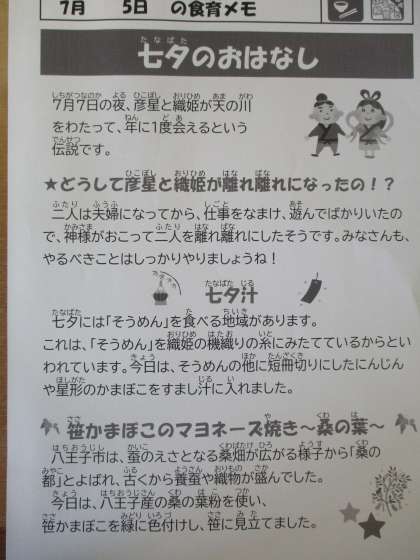 7月 5日 の食育メモ
七夕のおはなし
7月7日の夜、彦星と織姫が天の川
をわたって、年に1度会えるという
伝説です。
★どうして彦星と織姫が離れ離れになったの!?
二人は夫婦になってから、仕事をなまけ、遊んでばかりいたの
で、神様がおこって二人を離れ離れにしたそうです。みなさんも、
やるべきことはしっかりやりましょうね!
七夕汁
七夕には「そうめん」を食べる地域があります。
これは、「そうめん」を織姫の機織りの糸にみたてているからとい
われています。今日は、そうめんの他に短冊切りにしたにんじん
や星形のかまぼこをすまし汁に入れました。
笹かまぼこのマヨネーズ焼き～桑の葉～
八王子市は、蚕のえさとなる桑畑が広がる様子から「桑の
都」とよばれ、古くから養蚕や織物が盛んでした。
今日は、八王子産の桑の葉粉を使い、
笹かまぼこを緑に色付けし、笹に見立てました。